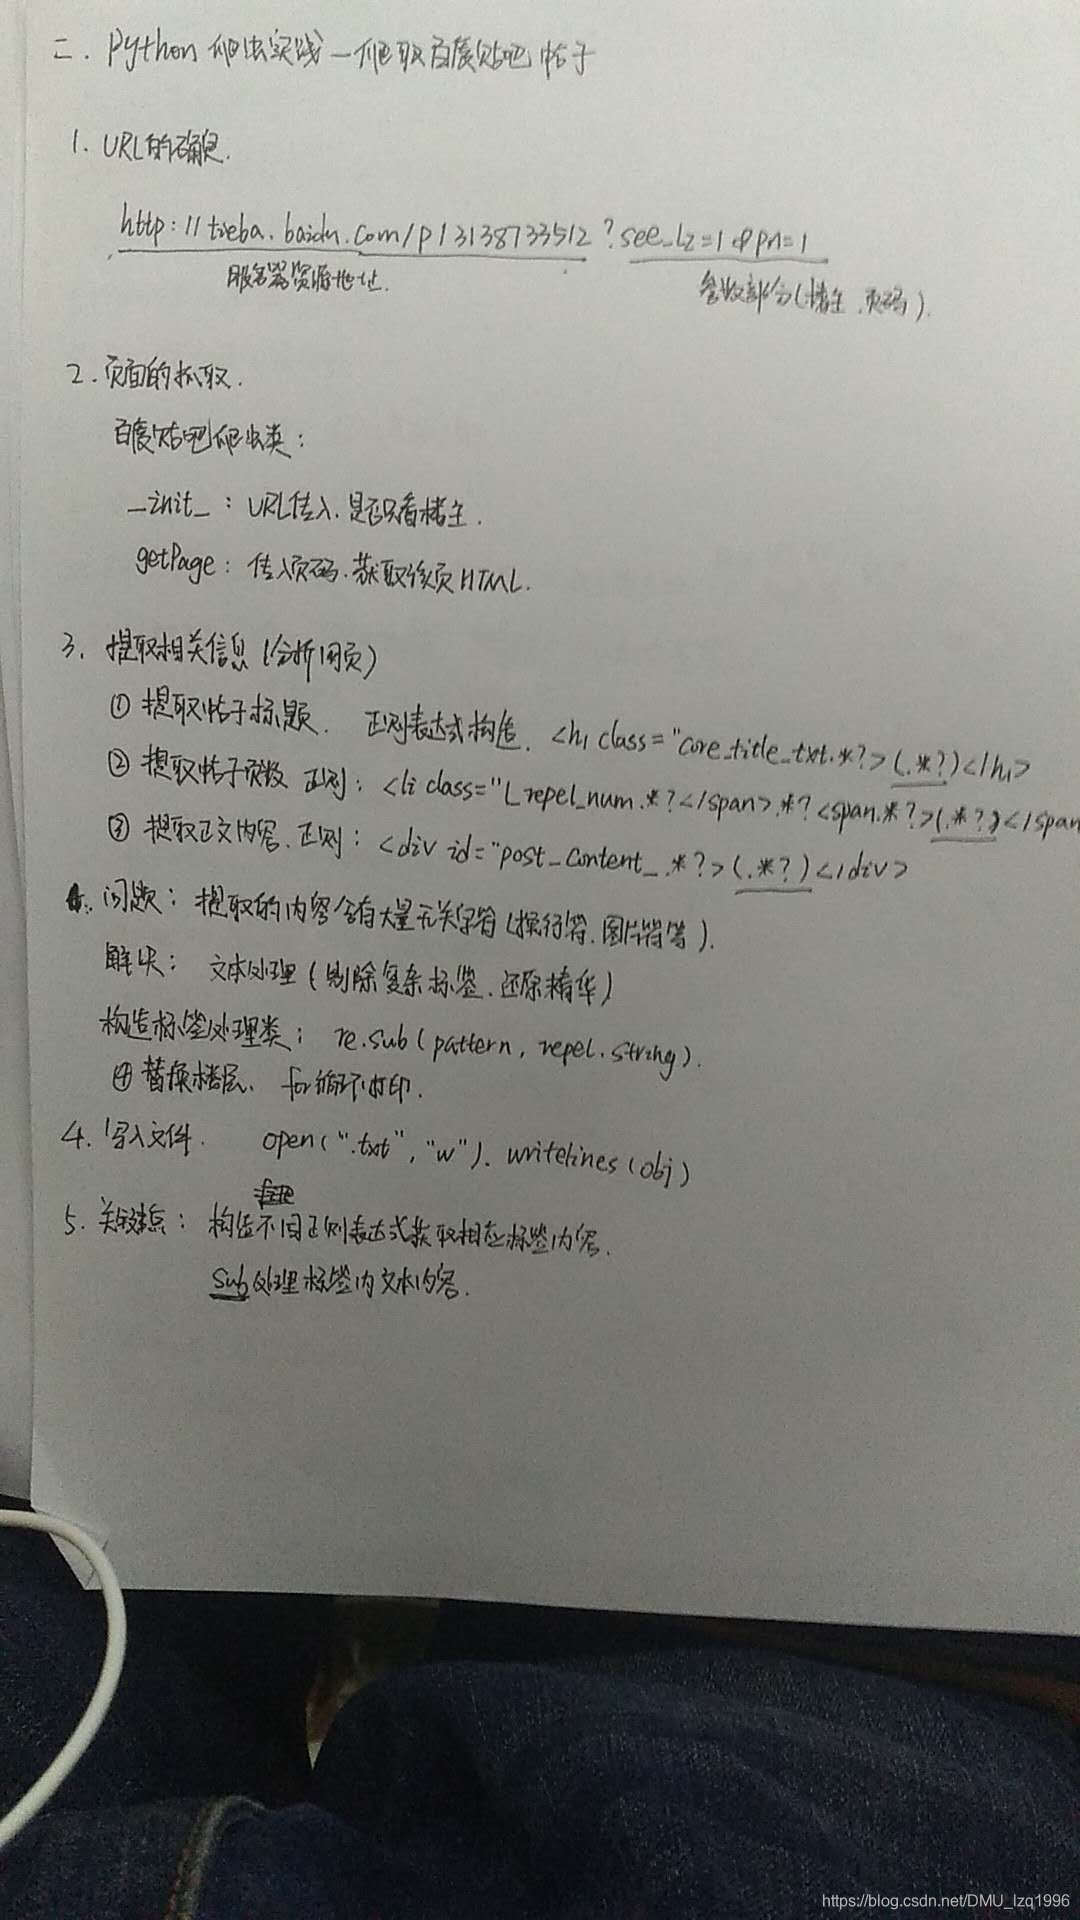 二. Python 爬虫实践—爬取百度贴吧帖子
1. URL的确定.
http://tieba.baidu.com/p/3138733512?see_lz=1&pn=1
服务器资源地址. 参数部分(楼主、页码).
2. 页面的抓取.
百度贴吧爬虫类:
_init_: URL传入.是否只看楼主.
getPage: 传入页码.获取该页HTML.
3. 提取相关信息(分析网页)
① 提取帖子标题. 正则表达式构造. <h1 class="core_title_txt.*?>(.*?)</h1>
② 提取帖子页数 正则: <li class="l_repel_num.*?</span>.*?<span.*?>(.*?)</span
③ 提取正文内容.正则: <div id="post_content_.*?>(.*?)</div>
问题: 提取的内容含有大量无关字符(换行符.图片符等).
解决: 文本处理(剔除复杂标签.还原精华)
构造标签处理类: re.sub(pattern, repel.string).
④ 替换楼层. for循环打印.
4. 写入文件. open(".txt","w"). writelines(obj)
5. 关键点: 构造不同正则表达式获取相应标签内容.
sub处理标签内文本内容.
https://blog.csdn.net/DMU_lzq1996